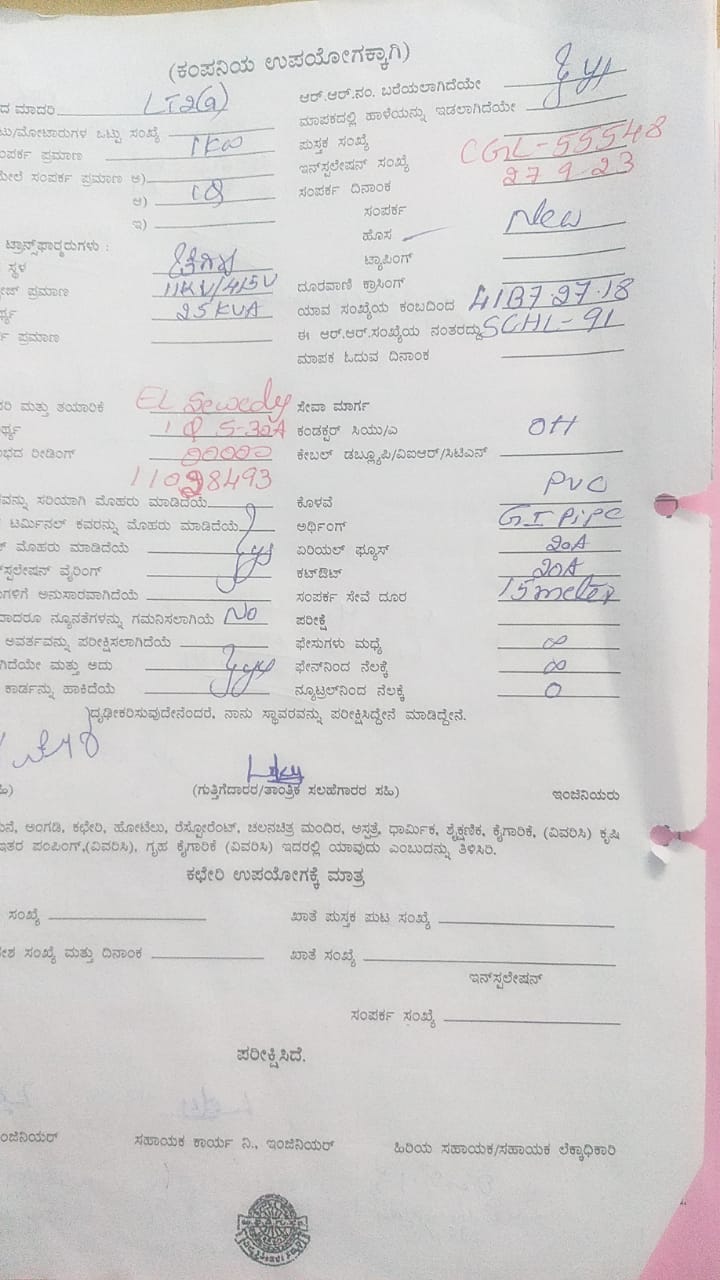 (ಕಂಪನಿಯ ಉಪಯೋಗಕ್ಕಾಗಿ)
ದ ಮಾದರಿ LT2(a) ಆರ್.ಆರ್.ನಂ. ಬರೆಯಲಾಗಿದೆಯೇ
ಮಾಪಕದಲ್ಲಿ ಹಾಳೆಯನ್ನು ಇಡಲಾಗಿದೆಯೇ
ಟು/ಮೋಟಾರುಗಳ ಒಟ್ಟು ಸಂಖ್ಯೆ ಪುಸ್ತಕ ಸಂಖ್ಯೆ
ಂಪರ್ಕ ಪ್ರಮಾಣ 1KW ಇನ್‌ಸ್ಟಲೇಷನ್ ಸಂಖ್ಯೆ CGL-55548
ಮೇಲೆ ಸಂಪರ್ಕ ಪ್ರಮಾಣ ಅ) ಸಂಪರ್ಕ ದಿನಾಂಕ 27 9 23
ಆ) 1Φ ಸಂಪರ್ಕ
ಇ) ಹೊಸ New
ಟ್ರಾನ್ಸ್‌ಫಾರ್ಮರುಗಳು : ಟ್ಯಾಪಿಂಗ್
ಸ್ಥಳ
ೇಜ್ ಪ್ರಮಾಣ 11KV/415V ದೂರವಾಣಿ ಕ್ರಾಸಿಂಗ್
ರ್ಥ್ಯ 25KVA ಯಾವ ಸಂಖ್ಯೆಯ ಕಂಬದಿಂದ 41B7 27.18
ರ್ಕ ಪ್ರಮಾಣ ಈ ಆರ್.ಆರ್.ಸಂಖ್ಯೆಯ ನಂತರದ್ದು SCHL-91
ಮಾಪಕ ಓದುವ ದಿನಾಂಕ
ರಿ ಮತ್ತು ತಯಾರಿಕೆ EL Sewedy ಸೇವಾ ಮಾರ್ಗ
ರ್ಥ್ಯ 1Φ 5-30A ಕಂಡಕ್ಟರ್ ಸಿಯು/ಎ OH
ಭದ ರೀಡಿಂಗ್ 00000 ಕೇಬಲ್ ಡಬ್ಲ್ಯೂಪಿ/ವಿಐಆರ್/ಸಿಟಿಎಸ್
11028493
ವನ್ನು ಸರಿಯಾಗಿ ಮೊಹರು ಮಾಡಿದೆಯೆ ಕೊಳವೆ PVC
ಟರ್ಮಿನಲ್ ಕವರನ್ನು ಮೊಹರು ಮಾಡಿದೆಯೆ ಅರ್ಥಿಂಗ್ GI PiPe
ಮೊಹರು ಮಾಡಿದೆಯೆ ಏರಿಯಲ್ ಫ್ಯೂಸ್ 20A
್‌ಸ್ಟಲೇಷನ್ ವೈರಿಂಗ್ ಕಟ್‌ಔಟ್ 20A
ುಗಳಿಗೆ ಅನುಸಾರವಾಗಿದೆಯೇ ಸಂಪರ್ಕ ಸೇವೆ ದೂರ 15 meter
ದಾದರೂ ನ್ಯೂನತೆಗಳನ್ನು ಗಮನಿಸಲಾಗಿಯೆ No ಪರೀಕ್ಷೆ
ಅವರ್ತವನ್ನು ಪರೀಕ್ಷಿಸಲಾಗಿದೆಯೆ ಫೇಸುಗಳು ಮಧ್ಯೆ ∞
ಗಿದೆಯೇ ಮತ್ತು ಅದು ಫೇಸ್‌ನಿಂದ ನೆಲಕ್ಕೆ ∞
ಕಾರ್ಡನ್ನು ಹಾಕಿದೆಯೆ ನ್ಯೂಟ್ರಲ್‌ನಿಂದ ನೆಲಕ್ಕೆ 0
ದೃಢೀಕರಿಸುವುದೇನೆಂದರೆ, ನಾನು ಸ್ಥಾವರವನ್ನು ಪರೀಕ್ಷಿಸಿದ್ದೇನೆ ಮಾಡಿದ್ದೇನೆ.
ಹಿ) (ಗುತ್ತಿಗೆದಾರರ/ತಾಂತ್ರಿಕ ಸಲಹೆಗಾರರ ಸಹಿ) ಇಂಜಿನಿಯರು
ನೆ, ಅಂಗಡಿ, ಕಛೇರಿ, ಹೋಟೆಲು, ರೆಸ್ಟೋರೆಂಟ್, ಚಲನಚಿತ್ರ ಮಂದಿರ, ಅಸ್ಪತ್ರೆ, ಧಾರ್ಮಿಕ, ಶೈಕ್ಷಣಿಕ, ಕೈಗಾರಿಕೆ, (ವಿವರಿಸಿ) ಕೃಷಿ
ಇತರ ಪಂಪಿಂಗ್,(ವಿವರಿಸಿ), ಗೃಹ ಕೈಗಾರಿಕೆ (ವಿವರಿಸಿ) ಇದರಲ್ಲಿ ಯಾವುದು ಎಂಬುದನ್ನು ತಿಳಿಸಿರಿ.
ಕಛೇರಿ ಉಪಯೋಗಕ್ಕೆ ಮಾತ್ರ
ಸಂಖ್ಯೆ ಖಾತೆ ಪುಸ್ತಕ ಪುಟ ಸಂಖ್ಯೆ
ೇಶ ಸಂಖ್ಯೆ ಮತ್ತು ದಿನಾಂಕ ಖಾತೆ ಸಂಖ್ಯೆ
ಇನ್‌ಸ್ಟಲೇಷನ್
ಸಂಪರ್ಕ ಸಂಖ್ಯೆ
ಪರೀಕ್ಷಿಸಿದೆ.
ಂಜಿನಿಯರ್ ಸಹಾಯಕ ಕಾರ್ಯ ನಿ., ಇಂಜಿನಿಯರ್ ಹಿರಿಯ ಸಹಾಯಕ/ಸಹಾಯಕ ಲೆಕ್ಕಾಧಿಕಾರಿ